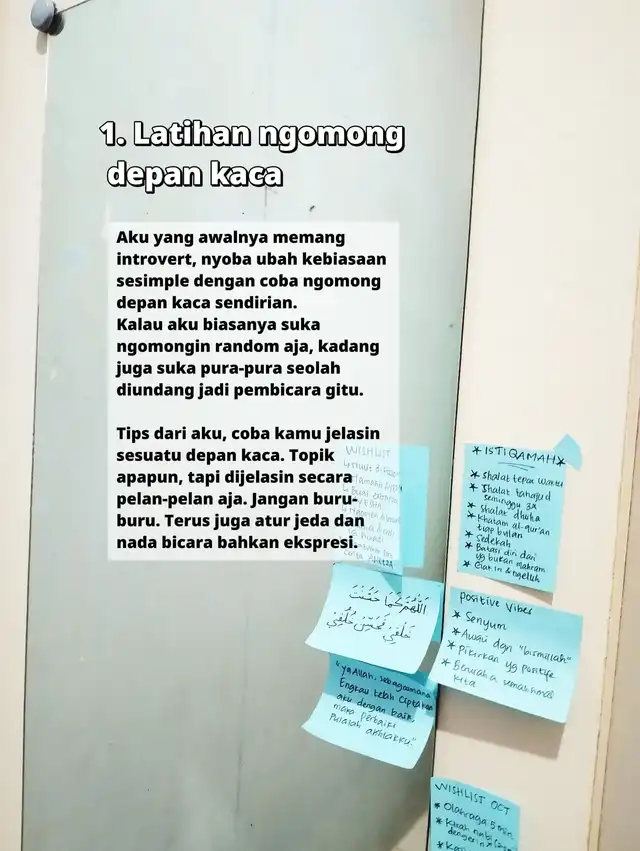 1. Latihan ngomong
depan kaca
Aku yang awalnya memang
introvert, nyoba ubah kebiasaan
sesimple dengan coba ngomong
depan kaca sendirian.
Kalau aku biasanya suka
ngomongin random aja, kadang
juga suka pura-pura seolah
diundang jadi pembicara gitu.
Tips dari aku, coba kamu jelasin
sesuatu depan kaca. Topik
apapun, tapi dijelasin secara
pelan-pelan aja. Jangan buru-
buru. Terus juga atur jeda dan
nada bicara bahkan ekspresi.
WISHLIST
*ISTIQAMAH*
* Shalat tepat waktu
* Shalat tahajud
seminggu 3x
* Shalat dhuha
* Khatam al-qur'an
tiap bulan
* Sedekah
* Batasi diri dari
yg bukan mahram
اللهم كما حسنت
خلقي فحسن خلقي
"Ya Allah, sebagaimana
Engkau telah ciptakan
aku dengan baik,
maka perbaiki
pulalah akhlakku."
Positive Vibes
* Senyum
* Awali dgn "bismillah"
* Pikirkan yg positif
* Berusaha semaksimal
kita
WISHLIST OCT
* Olahraga 5 min